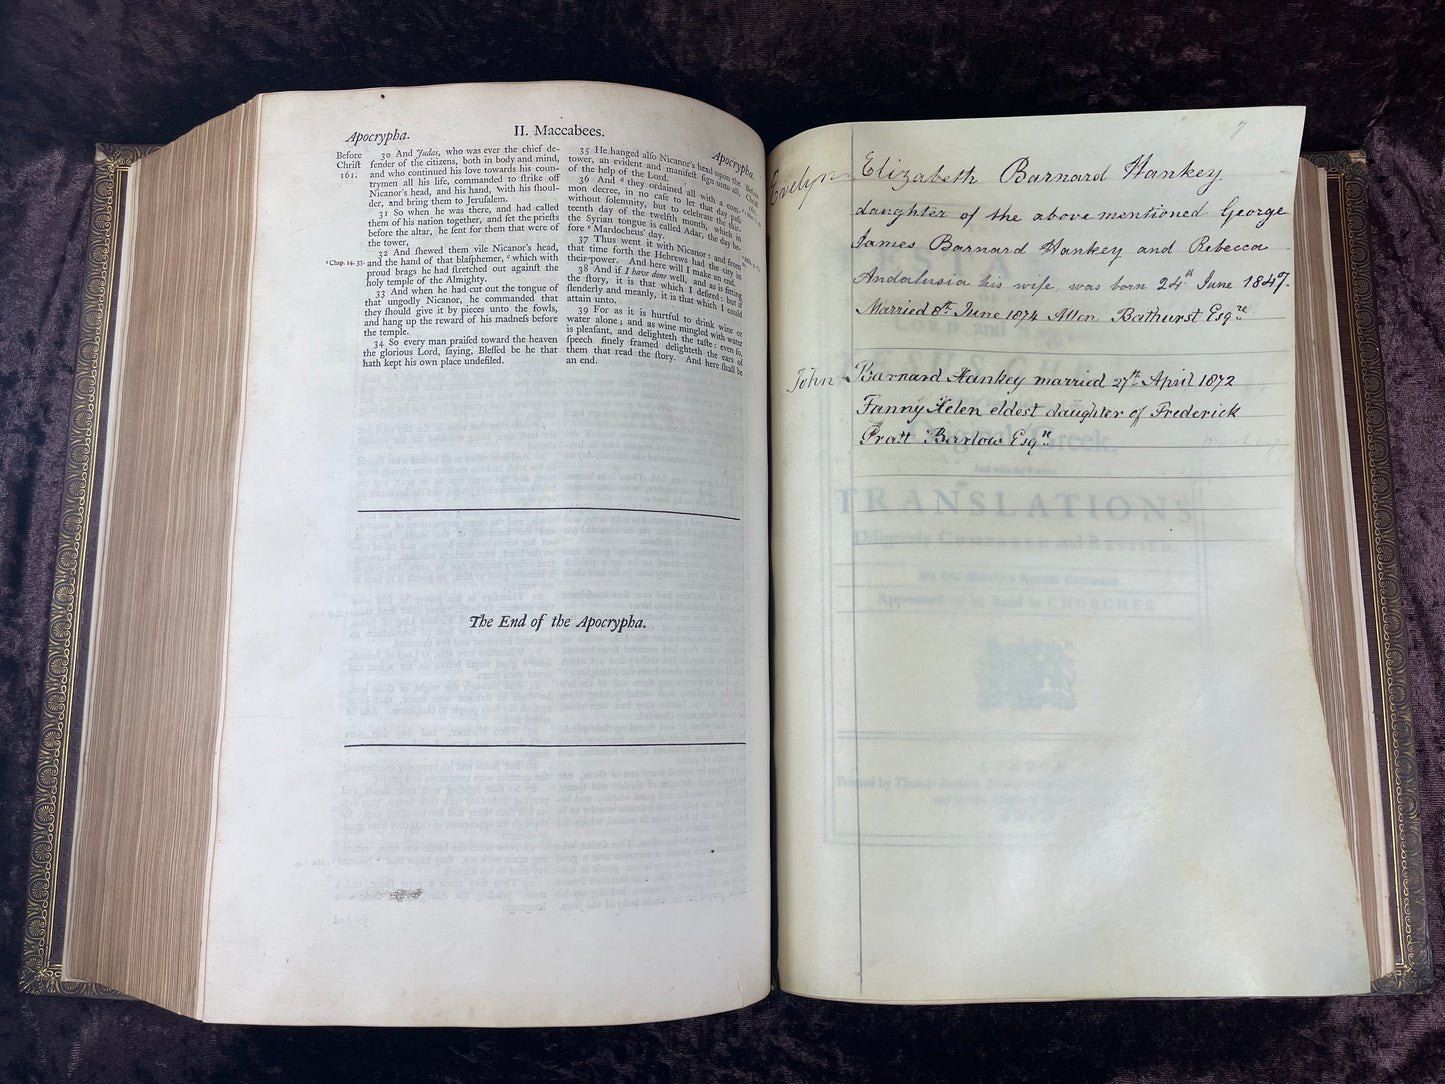 Apocrypha.
II. Maccabees.
Apocrypha.
Before
Chriſt
161.
30 And Judas, who was ever the chief de-
fender of the citizens, both in body and mind,
and who continued his love towards his coun-
trymen all his life, commanded to ſtrike off
Nicanor's head, and his hand, with his ſhoul-
der, and bring them to Jeruſalem.
31 So when he was there, and had called
them of his nation together, and ſet the prieſts
before the altar, he ſent for them that were of
the tower,
32 And ſhewed them vile Nicanor's head,
and the hand of that blaſphemer, ᶜ which with
proud brags he had ſtretched out againſt the
holy temple of the Almighty.
33 And when he had cut out the tongue of
that ungodly Nicanor, he commanded that
they ſhould give it by pieces unto the fowls,
and hang up the reward of his madneſs before
the temple.
34 So every man praiſed toward the heaven
the glorious Lord, ſaying, Bleſſed be he that
hath kept his own place undefiled.
ᶜ Chap. 14. 33.
35 He hanged alſo Nicanor's head upon the
tower, an evident and manifeſt ſign unto all,
of the help of the Lord.
36 And ᵈ they ordained all with a com-
mon decree, in no caſe to let that day paſs
without ſolemnity, but to celebrate the thir-
teenth day of the twelfth month, which in
the Syrian tongue is called Adar, the day be-
fore ᵉ Mardocheus' day.
37 Thus went it with Nicanor: and from
that time forth the Hebrews had the city in
their power. And here will I make an end.
38 And if I have done well, and as is fitting
the ſtory, it is that which I deſired: but if
ſlenderly and meanly, it is that which I could
attain unto.
39 For as it is hurtful to drink wine or
water alone; and as wine mingled with water
is pleaſant, and delighteth the taſte: even ſo,
ſpeech finely framed delighteth the ears of
them that read the ſtory. And here ſhall be
an end.
Before
Chriſt
The End of the Apocrypha.
7
Evelyn Elizabeth Barnard Hankey
daughter of the above mentioned George
James Barnard Hankey and Rebecca
Andalusia his wife, was born 24th June 1847.
Married 8th June 1874 Allen Bathurst Esqre
John Barnard Hankey married 27th April 1872
Fanny Helen eldest daughter of Frederick
Pratt Barlow Esqre
TRANSLATIONS
Diligently COMPARED and REVISED,
Appointed to be Read in CHURCHES
LONDON